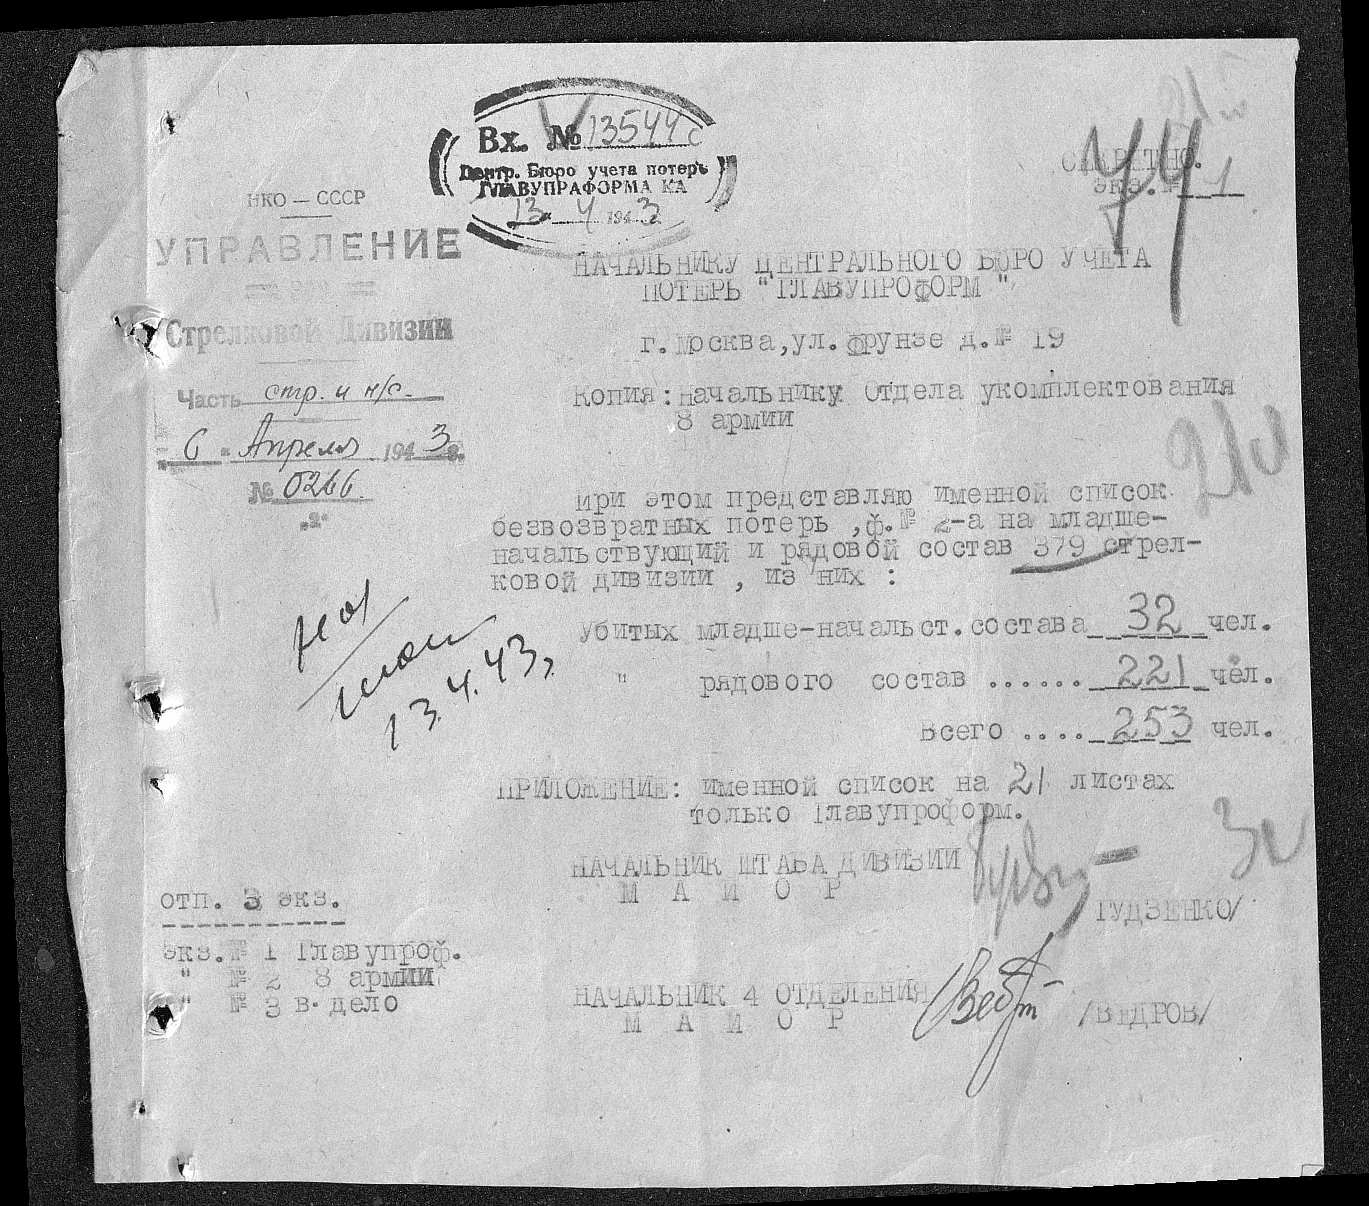 Вх. № 13544с
Центр. Бюро учета потерь
ГЛАВУПРАФОРМА КА
13 4 1943
СЕКРЕТНО.
экз. № 1
44
НКО — СССР
УПРАВЛЕНИЕ
Стрелковой Дивизии
Часть стр. и н/с.
"6" Апреля 1943 г.
№ 0266
НАЧАЛЬНИКУ ЦЕНТРАЛЬНОГО БЮРО УЧЕТА
ПОТЕРЬ "ГЛАВУПРОФОРМ"
г. Москва, ул. Фрунзе д. № 19
Копия: Начальнику Отдела укомплектования
8 армии
При этом представляю именной список
безвозвратных потерь , ф. № 2-а на младше-
начальствующий и рядовой состав 379 стрел-
ковой дивизии , из них :
Убитых младше-начальст. состава 32 чел.
" рядового состав ...... 221 чел.
Всего .... 253 чел.
13.4.43
ПРИЛОЖЕНИЕ: Именной список на 21 листах
только Главупроформ.
НАЧАЛЬНИК ШТАБА ДИВИЗИИ
М А Й О Р
ГУДЗЕНКО/
НАЧАЛЬНИК 4 ОТДЕЛЕНИЯ
М А Й О Р
/ВЕДРОВ/
отп. 3 экз.
экз. № 1 Главупроф.
" № 2 8 армии
" № 3 в-дело